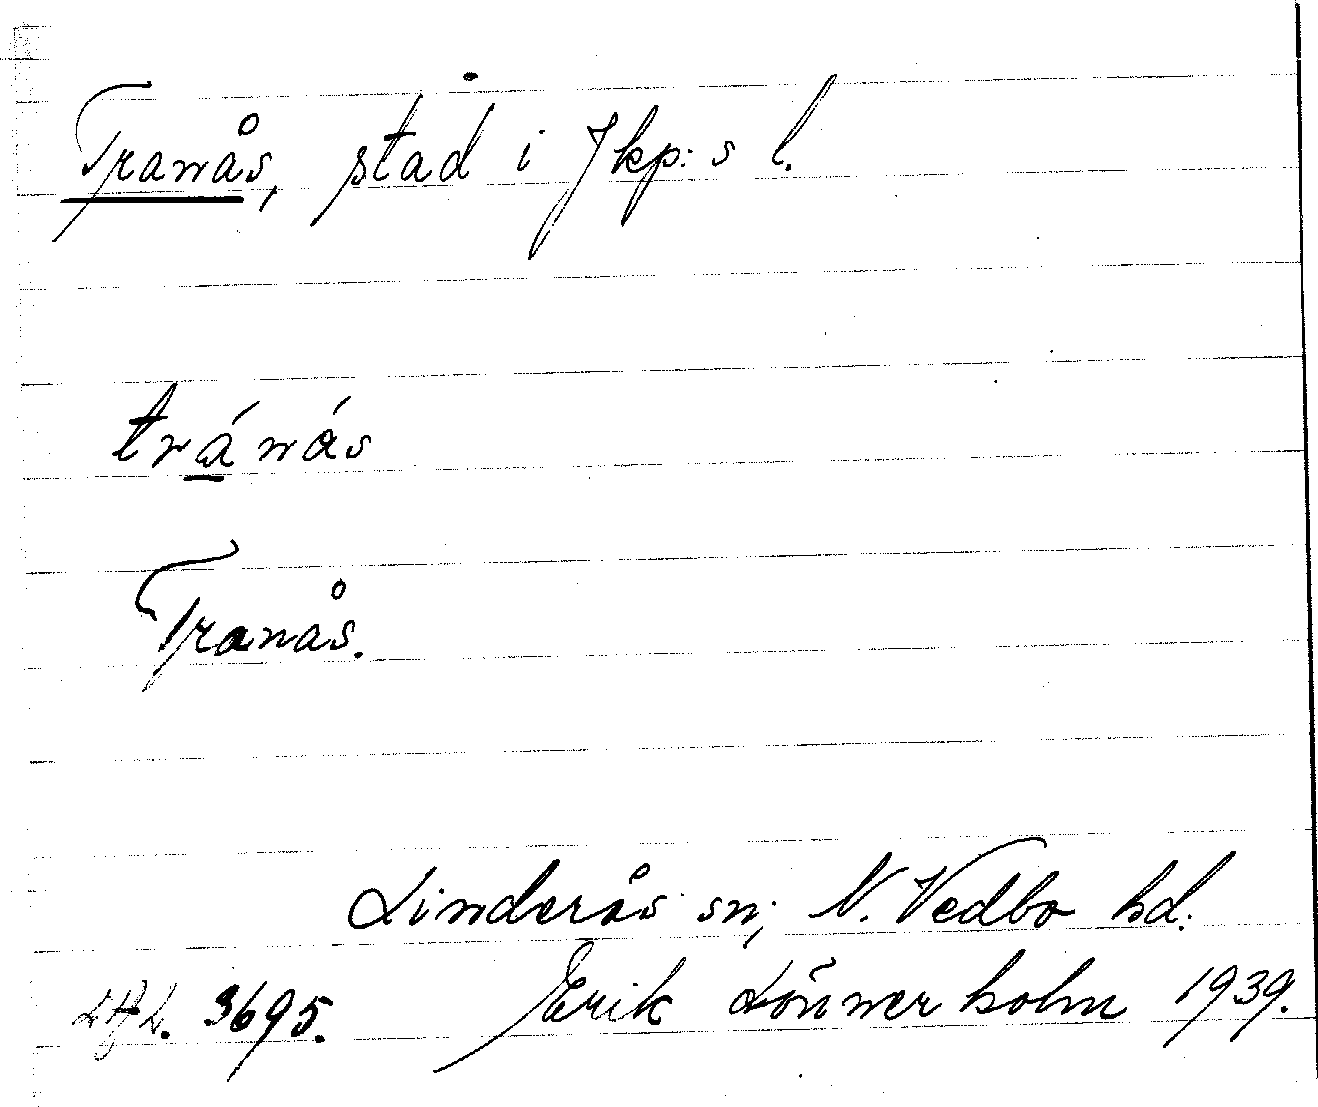 Tranås, stad i Jkp:s l.
tránás
Tranås.
Linderås sn; N. Vedbo hd.
3695. Erik Lönnerholm 1939.